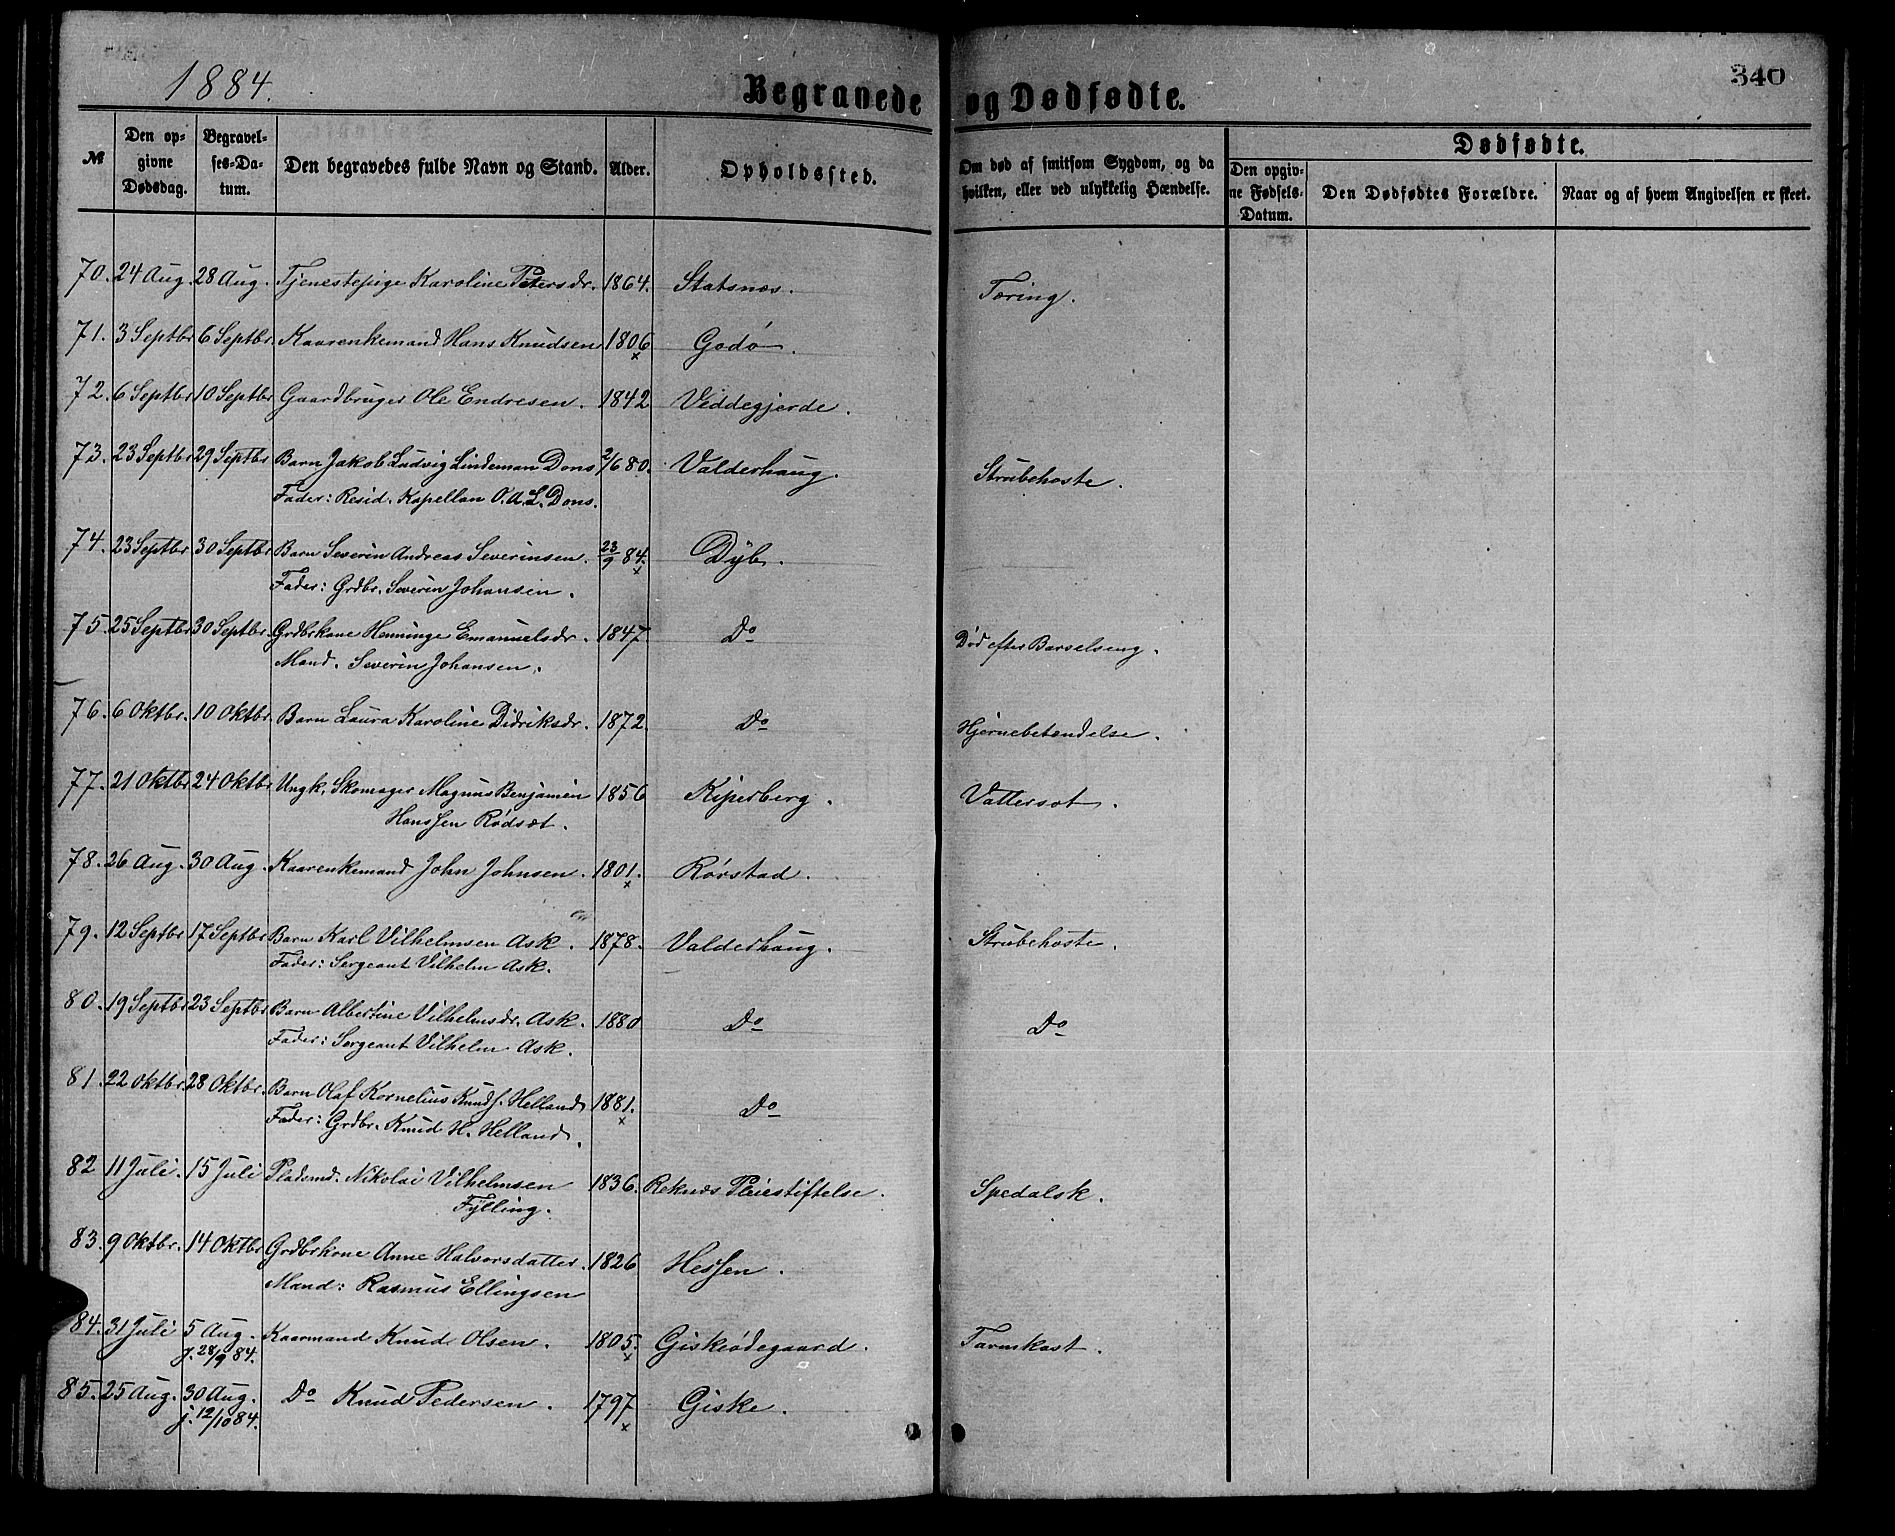 1884.
Begravede og Dødfødte.
340
№
Den opgivne Dødsdag.
Begravelses-Datum.
Den begravedes fulde Navn og Stand.
Alder.
Opholdssted.
Om død af smitsom Sygdom, og da hvilken, eller ved ulykkelig Hændelse.
Dødfødte.
Den opgivne Fødsels-Datum.
Den Dødfødtes Forældre.
Naar og af hvem Angivelsen er skeet.
70. 24 Aug. 28 Aug. Tjenestepige Karoline Petersdr. 1864. Statsnæs. Tæring.
71. 3 Septbr 6 Septbr. Kaarenkemand Hans Knudsen 1806 x Godø. 
72. 6 Septbr 10 Septbr Gaardbruger Ole Endresen. 1842 Veddegjerde.
73. 23 Septbr 29 Septbr Barn Jakob Ludvig Lindeman Dons 2/6 80. Valderhaug. Strubehoste.
Fader: Resid. Kapellan O.A.L. Dons.
74. 23 Septbr 30 Septbr Barn Severin Andreas Severinsen. 23/9 84. x Dyb.
Fader: Grdbr. Severin Johansen.
75. 25 Septbr 30 Septbr. Grdbrkone Henninge Emanuelsdr. 1847. Do Død efter Barselseng.
Mand. Severin Johansen.
76. 6 Oktbr. 10 Oktbr. Barn Laura Karoline Didriksdr. 1872. Do Hjernebetændelse.
77. 21 Oktbr 24 Oktbr Ungk. Skomager Magnus Benjamin 1856 Kiperberg. Vattersot.
Hanssen Rødsæt.
78. 26 Aug. 30 Aug. Kaarenkemand John Johnsen. 1801. x Rørstad.
79. 12 Septbr 17 Septbr Barn Karl Vilhelmsen Ask. 1878. Valderhaug. Strubehoste.
Fader: Sergeant Vilhelm Ask.
80. 19 Septbr 23 Septbr Barn Albertine Vilhelmsdr. Ask. 1880 Do Do
Fader: Sergeant Vilhelm Ask.
81. 22 Oktbr. 28 Oktbr. Barn Olaf Kornelius Knuds. Helland 1881. x Do
Fader: Grdbr. Knud H. Helland.
82 11 Juli. 15 Juli Pladsmd. Nikolai Vilhelmsen 1836. Reknæs Pleiestiftelse. Spedalsk.
Fylling.
83. 9 Oktbr. 14 Oktbr Grdbrkone Anne Halvorsdatter. 1826 Hessen.
Mand: Rasmus Ellingsen
84. 31 Juli 5 Aug. Kaarmand Knud Olsen. 1805. x Giskeødegaard. Tarmkast.
j. 28/9 84.
85. 25 Aug. 30 Aug. Do Knud Pedersen. 1797 x Giske.
j. 12/10 84.